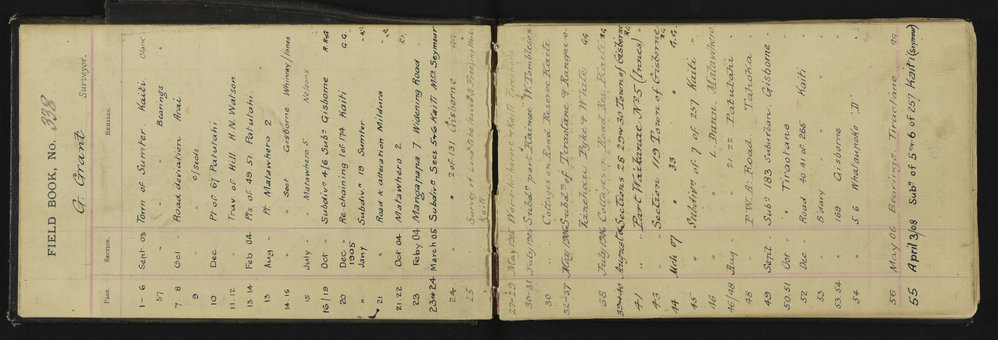 FIELD BOOK, No. 338
G. Grant Surveyor.
PAGE. SECTION. REMARKS.
1-6 Sept. 03 Town of Sumter Kaiti
57 " " Bearings
7 8 Oct - Road deviation Arai
9 " " c/Seals
10 Dec Pt of 67 Patutahi
11-12 " Trav of Hill H.N. Watson
13 14 Feb 04 Pts of 49 51 Patutahi
13 Aug " Pt Matawhero 2
14-15 " " Secr Gisborne Whinray/Innes
15 July - " Matawhero 5 Nelson
16/19 Oct " Subdivn 4/6 Subn Gisborne
20 Dec - Re chaining 1 of 174 Kaiti G.G.
" 1905 Jany Subdivn 19 Sumter
21 " Road & alteration Mildura
21 22 Oct 04 Matawhero 2
23 Feby 04 Mangapapa 7 Widening Road
23 & 24 March 05 Subdivn Secs 5 & 6 Kaiti Mrs Seymour
24 " " 2 of 131 Gisborne G.G.
25
Kaiti
27-29 May 1905
30-31 July 1905 Subdn part Kaiti W. Tombleson
30 Cottages on Road Reserve Kaiti
32-37 May 1906 Subdn of Tiraotane &
Pyke & White G.G.
38 July 1906 Cottages on Road Res. Kaiti
39 & 40 August 06 Sections 28 29 & 30 Town of Gisborne
41 " Part Waikanae No 5 (Innes)
43 " Section 119 Town of Gisborne
44 Mch 07 " 33 " " G.G.
45 " Subdivn of 7 of 257 Kaiti
46 " L. Dunn Matawhero
46/48 Aug - 21. 22 Patutahi
48 " P.W.D. Road Tahoka
49 Sept - Subn 183 Suburban Gisborne
50. 51 Oct " Tiraotane
52 Dec Road 40. 41 of 265 Kaiti
53 " B'dary " "
53. 54 " 169 Gisborne
54 " 5 6 Whataupoko 'D'
56 May 06 Bearings Tiraotane G.G.
55 April 3/08 Subn of 5 & 6 of 257 Kaiti (Seymour)